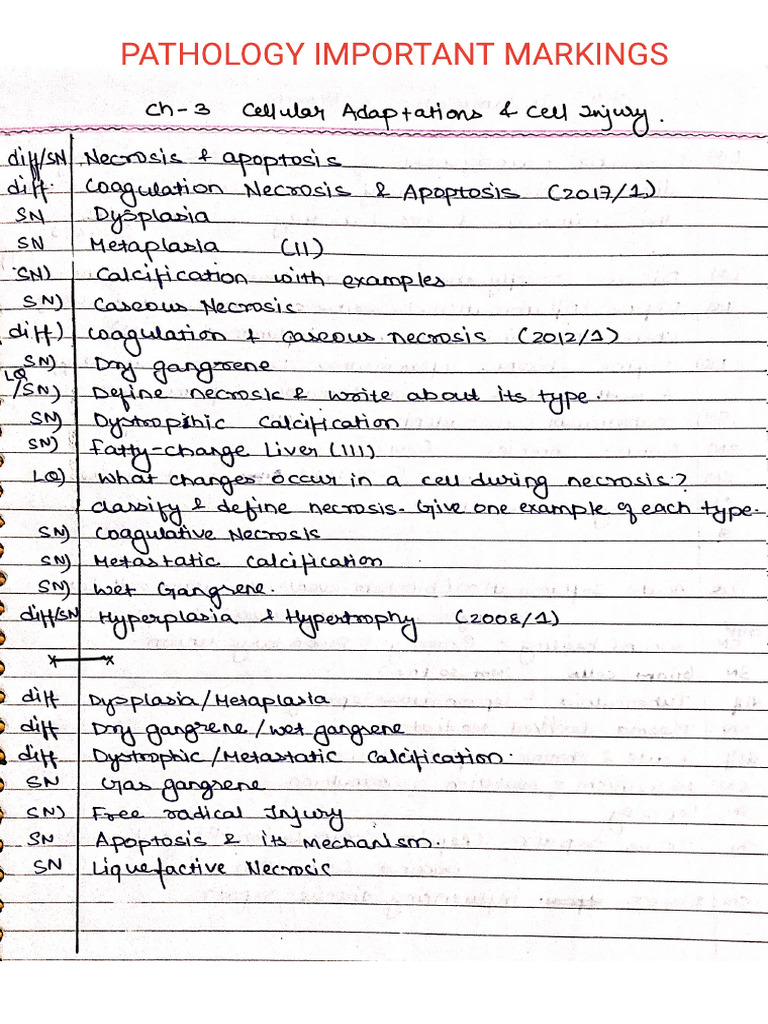 PATHOLOGY IMPORTANT MARKINGS
Ch-3 Cellular Adaptations & Cell Injury.
diff/SN Necrosis & apoptosis
diff. Coagulation Necrosis & Apoptosis (2017/1)
SN Dysplasia
SN Metaplasia (11)
SN) Calcification with examples
SN) Caseous Necrosis
diff) Coagulation & caseous necrosis (2012/1)
SN) Dry gangrene
LQ/SN) Define necrosis & write about its type.
SN) Dystrophic Calcification
SN) Fatty-change Liver (111)
LQ) What changes occur in a cell during necrosis?
classify & define necrosis. Give one example of each type-
SN) Coagulative Necrosis
SN) Metastatic Calcification
SN) Wet Gangrene.
diff/SN Hyperplasia & Hypertrophy (2008/1)
diff Dysplasia/Metaplasia
diff Dry gangrene/wet gangrene
diff Dystrophic/Metastatic Calcification.
SN Gas gangrene
SN) Free radical Injury
SN Apoptosis & its Mechanism.
SN Liquefactive Necrosis